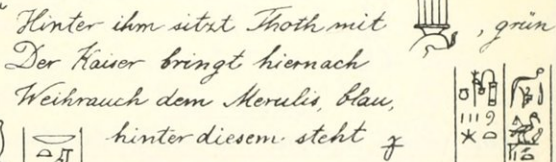 Hinter ihm sitzt Thoth mit , grün
Der Kaiser bringt hiernach
Weihrauch dem Merulis, blau,
hinter diesem steht